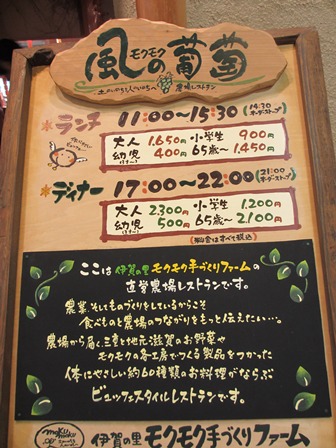 モクモク
風の葡萄
農場レストラン
ランチ 11:00～15:30 (14:30 オーダーストップ)
大人 1.650円 小学生 900円
幼児 400円 65歳～ 1.450円
ディナー 17:00～22:00 (21:00 オーダーストップ)
大人 2.300円 小学生 1.200円
幼児 500円 65歳～ 2.100円
(料金はすべて税込)
ここは伊賀の里モクモク手づくりファームの
直営農場レストランです。
農業、そしてものづくりをしているからこそ
食べものと農場のつながりをもっと伝えたい…。
農場から届く、三重と地元滋賀のお野菜や
モクモクの各工房でつくる製品をつかった
体にやさしい約60種類のお料理がならぶ
ビュッフェスタイルレストランです。
moku moku
伊賀の里 モクモク手づくりファーム